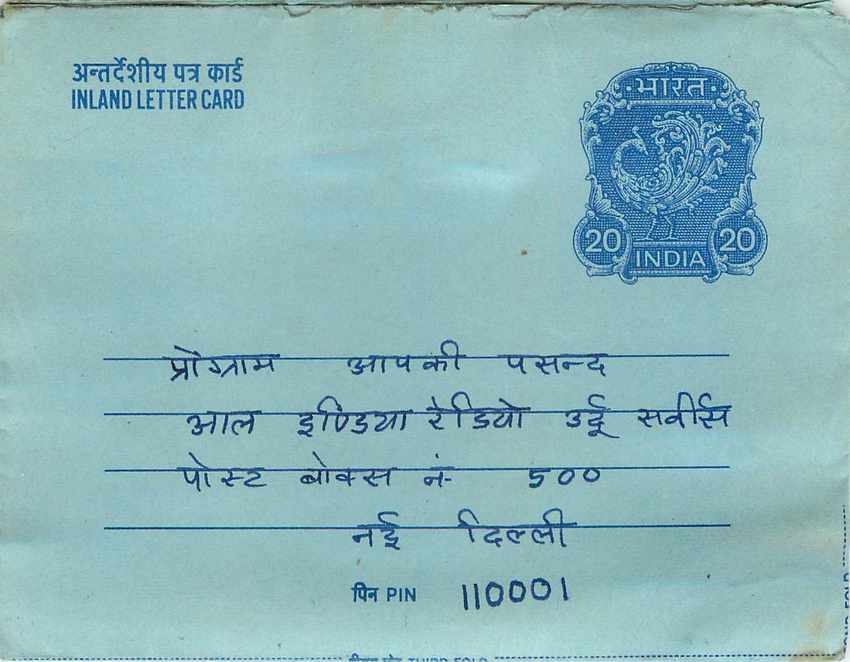 अन्तर्देशीय पत्र कार्ड
INLAND LETTER CARD
भारत
20 20
INDIA
प्रोग्राम आपकी पसन्द
आल इण्डिया रेडियो उर्दू सर्वीस
पोस्ट बोक्स नं- 500
नई दिल्ली
पिन PIN 110001
THIRD FOLD